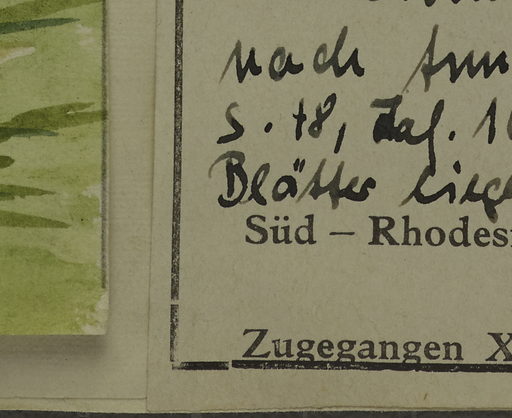 nach
S. 78, Taf. 1
Blätter
Süd – Rhodes
Zugegangen X